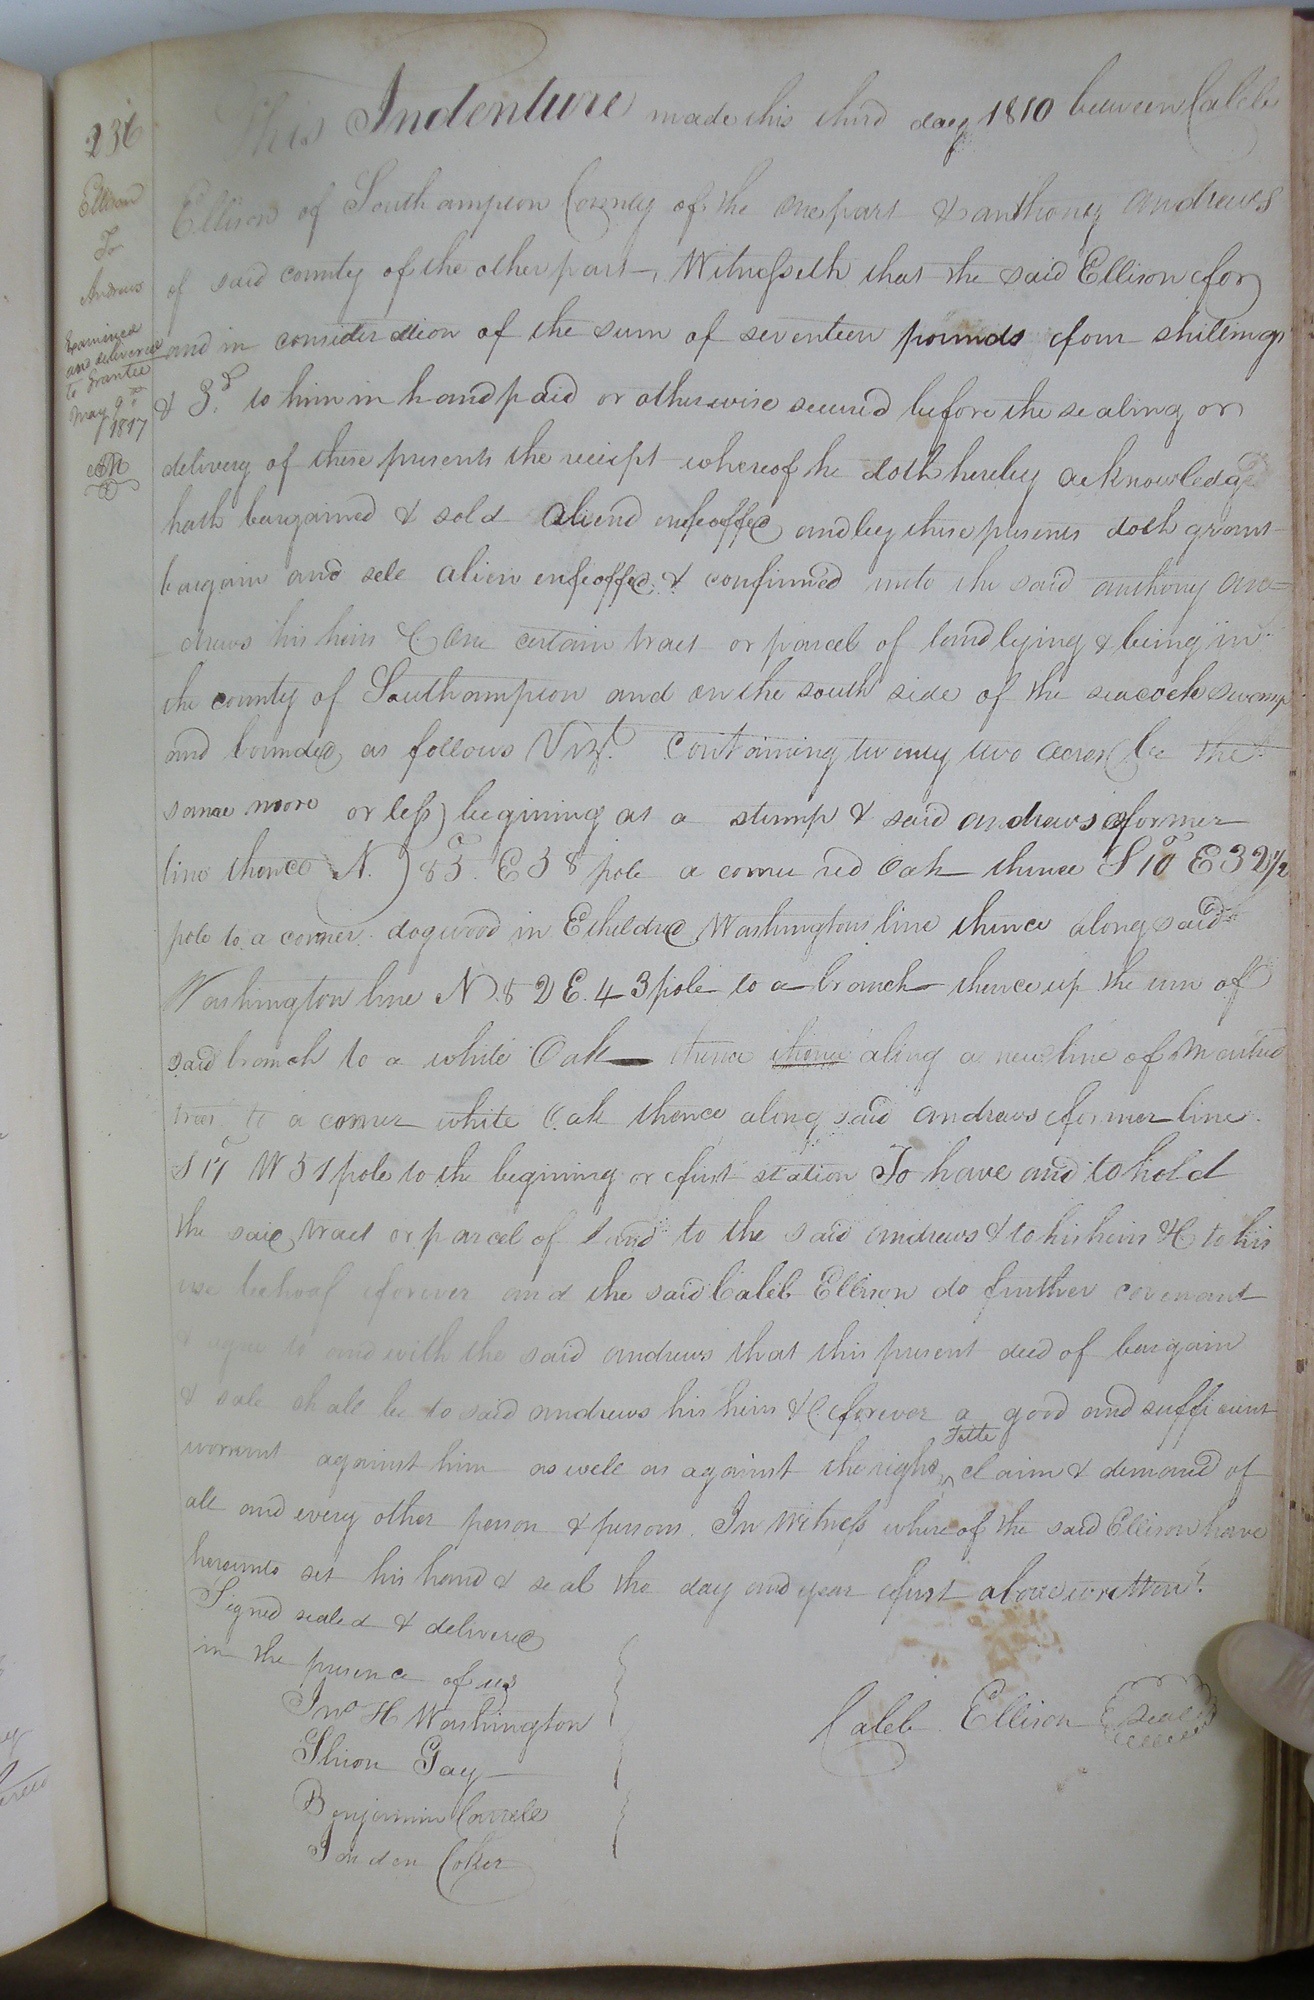 236
Ellison
To
Andrews
Examined
and delivered
to Grantee
May 9th
1817
This Indenture made this third day 1810 between Caleb
Ellison of Southampton County of the one part & anthony andrews
of said county of the other part, Witnesseth that the said Ellison for
and in consideration of the sum of seventeen pounds four shillings
& 3d. to him in hand paid or otherwise secured before the sealing or
delivery of these presents the receipt whereof he doth hereby acknowledge
hath bargained & sold aliend enfeoffed and by these presents doth grant
bargain and sell alien enfeoffed & confirmed unto the said anthony an=
drews his heirs &C one certain tract or parcel of land lying & being in
the county of Southampton and on the south side of the seacock swamp
and bounded as follows Vizt. Containing twenty two acres (be the
same more or less) begining at a stump & said andrews former
line thence N. 85. E 38 pole a corner red Oak thence S 10° E 32 1/2
pole to a corner dogwood in Etheldred Washingtons line thence along said
Washington line N. 82 E. 43 pole to a branch thence up the run of
said branch to a white Oak thence thence along a new line of Marked
trees to a corner white Oak thence along said andrews former line
S 17 W 51 pole to the begining or first station To have and to hold
the said tract or parcel of land to the said andrews & to his heirs &C to his
use behoof forever and the said Caleb Ellison do further covenant
& agree to and with the said andrews that this present deed of bargain
& sale shall be to said andrews his heirs &C. forever a good and sufficient
warrant against him as well as against the right title claim & demand of
all and every other person & persons. In Witness where of the said Ellison have
hereunto set his hand & seal the day and year first above written.
Signed sealed & delivered
in the presence of us
Jno H Washington
Gay
Benjamin
Caleb Ellison Seal